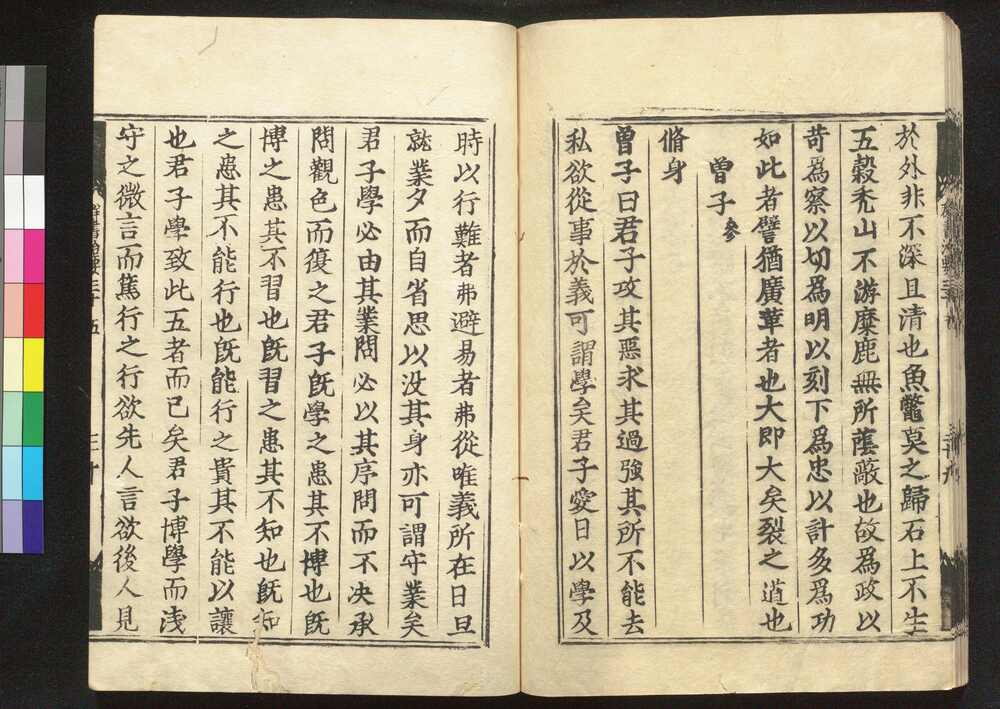 於外非不深且清也魚鼈莫之歸石上不生
五穀禿山不游麋鹿無所蔭蔽也故爲政以
苛爲察以切爲明以刻下爲忠以計多爲功
如此者譬猶廣革者也大即大矣裂之道也
曾子參
脩身
曾子曰君子攻其惡求其過強其所不能去
私欲從事於義可謂學矣君子愛日以學及
時以行難者弗避易者弗從唯義所在日旦
就業夕而自省思以没其身亦可謂守業矣
君子學必由其業問必以其序問而不决承
間觀色而復之君子旣學之患其不博也旣
博之患其不習也旣習之患其不知也旣知
之患其不能行也旣能行之貴其不能以讓
也君子學致此五者而已矣君子博學而淺
守之微言而篤行之行欲先人言欲後人見
群書治要三十五
三十